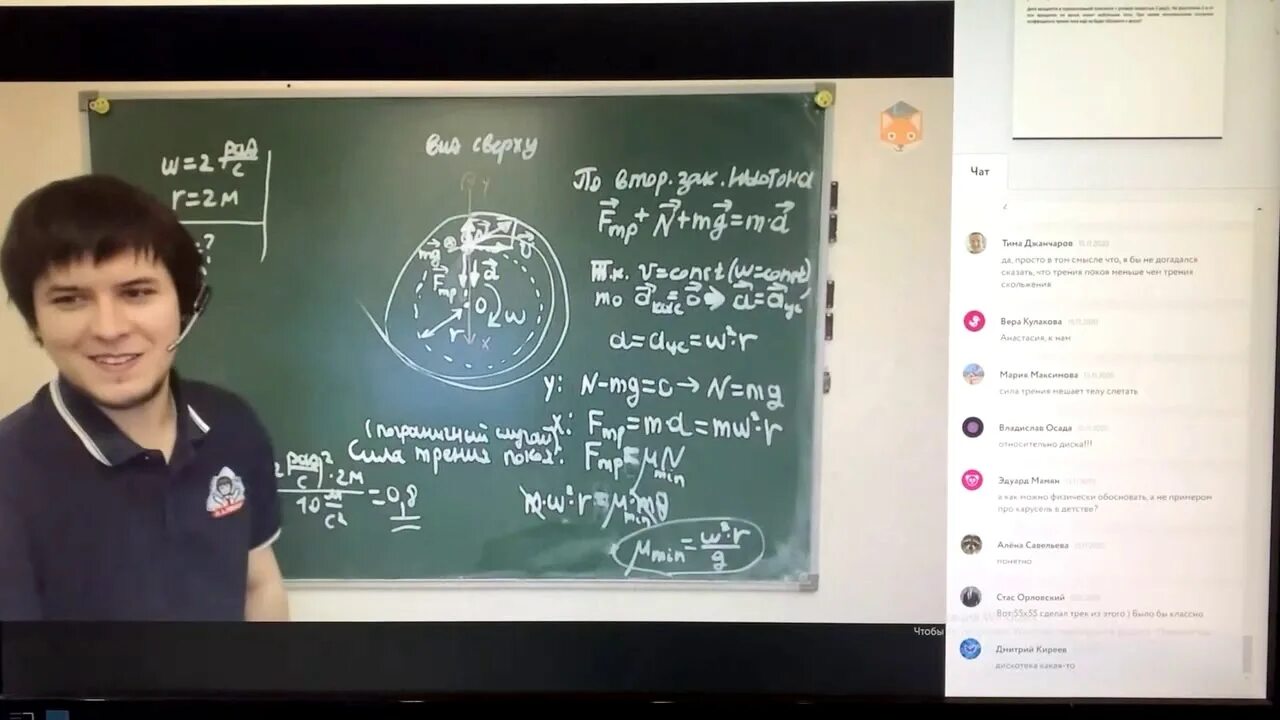 ω=2 рад/с
r=2м
?
Вид сверху
y
mg
N
υ
Fтр
a
O
ω
r
x
По втор. зак. Ньютона
Fтр+N+mg=m·a
т.к. υ=const (ω=const)
то aкас=0 → a=aцс
a=aцс=ω²·r
y: N-mg=0→N=mg
x: Fтр=ma=mω²·r
(пограничный случай)
Сила трения покоя: Fтр=μminN
(2 рад/с)²·2м / 10 м/с² =0,8
m·ω²·r=μmin·mg
μmin=ω²·r/g
Чтобы
Чат
Тима Джанчаров 15.11.2020
да, просто в том смысле что, я бы не догадался
сказать, что трения покоя меньше чем трения
скольжения
Вера Кулакова 15.11.2020
Анастасия, к нам
Мария Максимова 15.11.2020
сила трения мешает телу слетать
Владислав Осада
относительно диска!!!
Эдуард Мамян
а как можно физически обосновать, а не примером
про карусель в детстве?
Алёна Савельева
понятно
Стас Орловский
Вот 55x55 сделал трек из этого ) Было бы классно
Дмитрий Киреев
дискотека какая-то